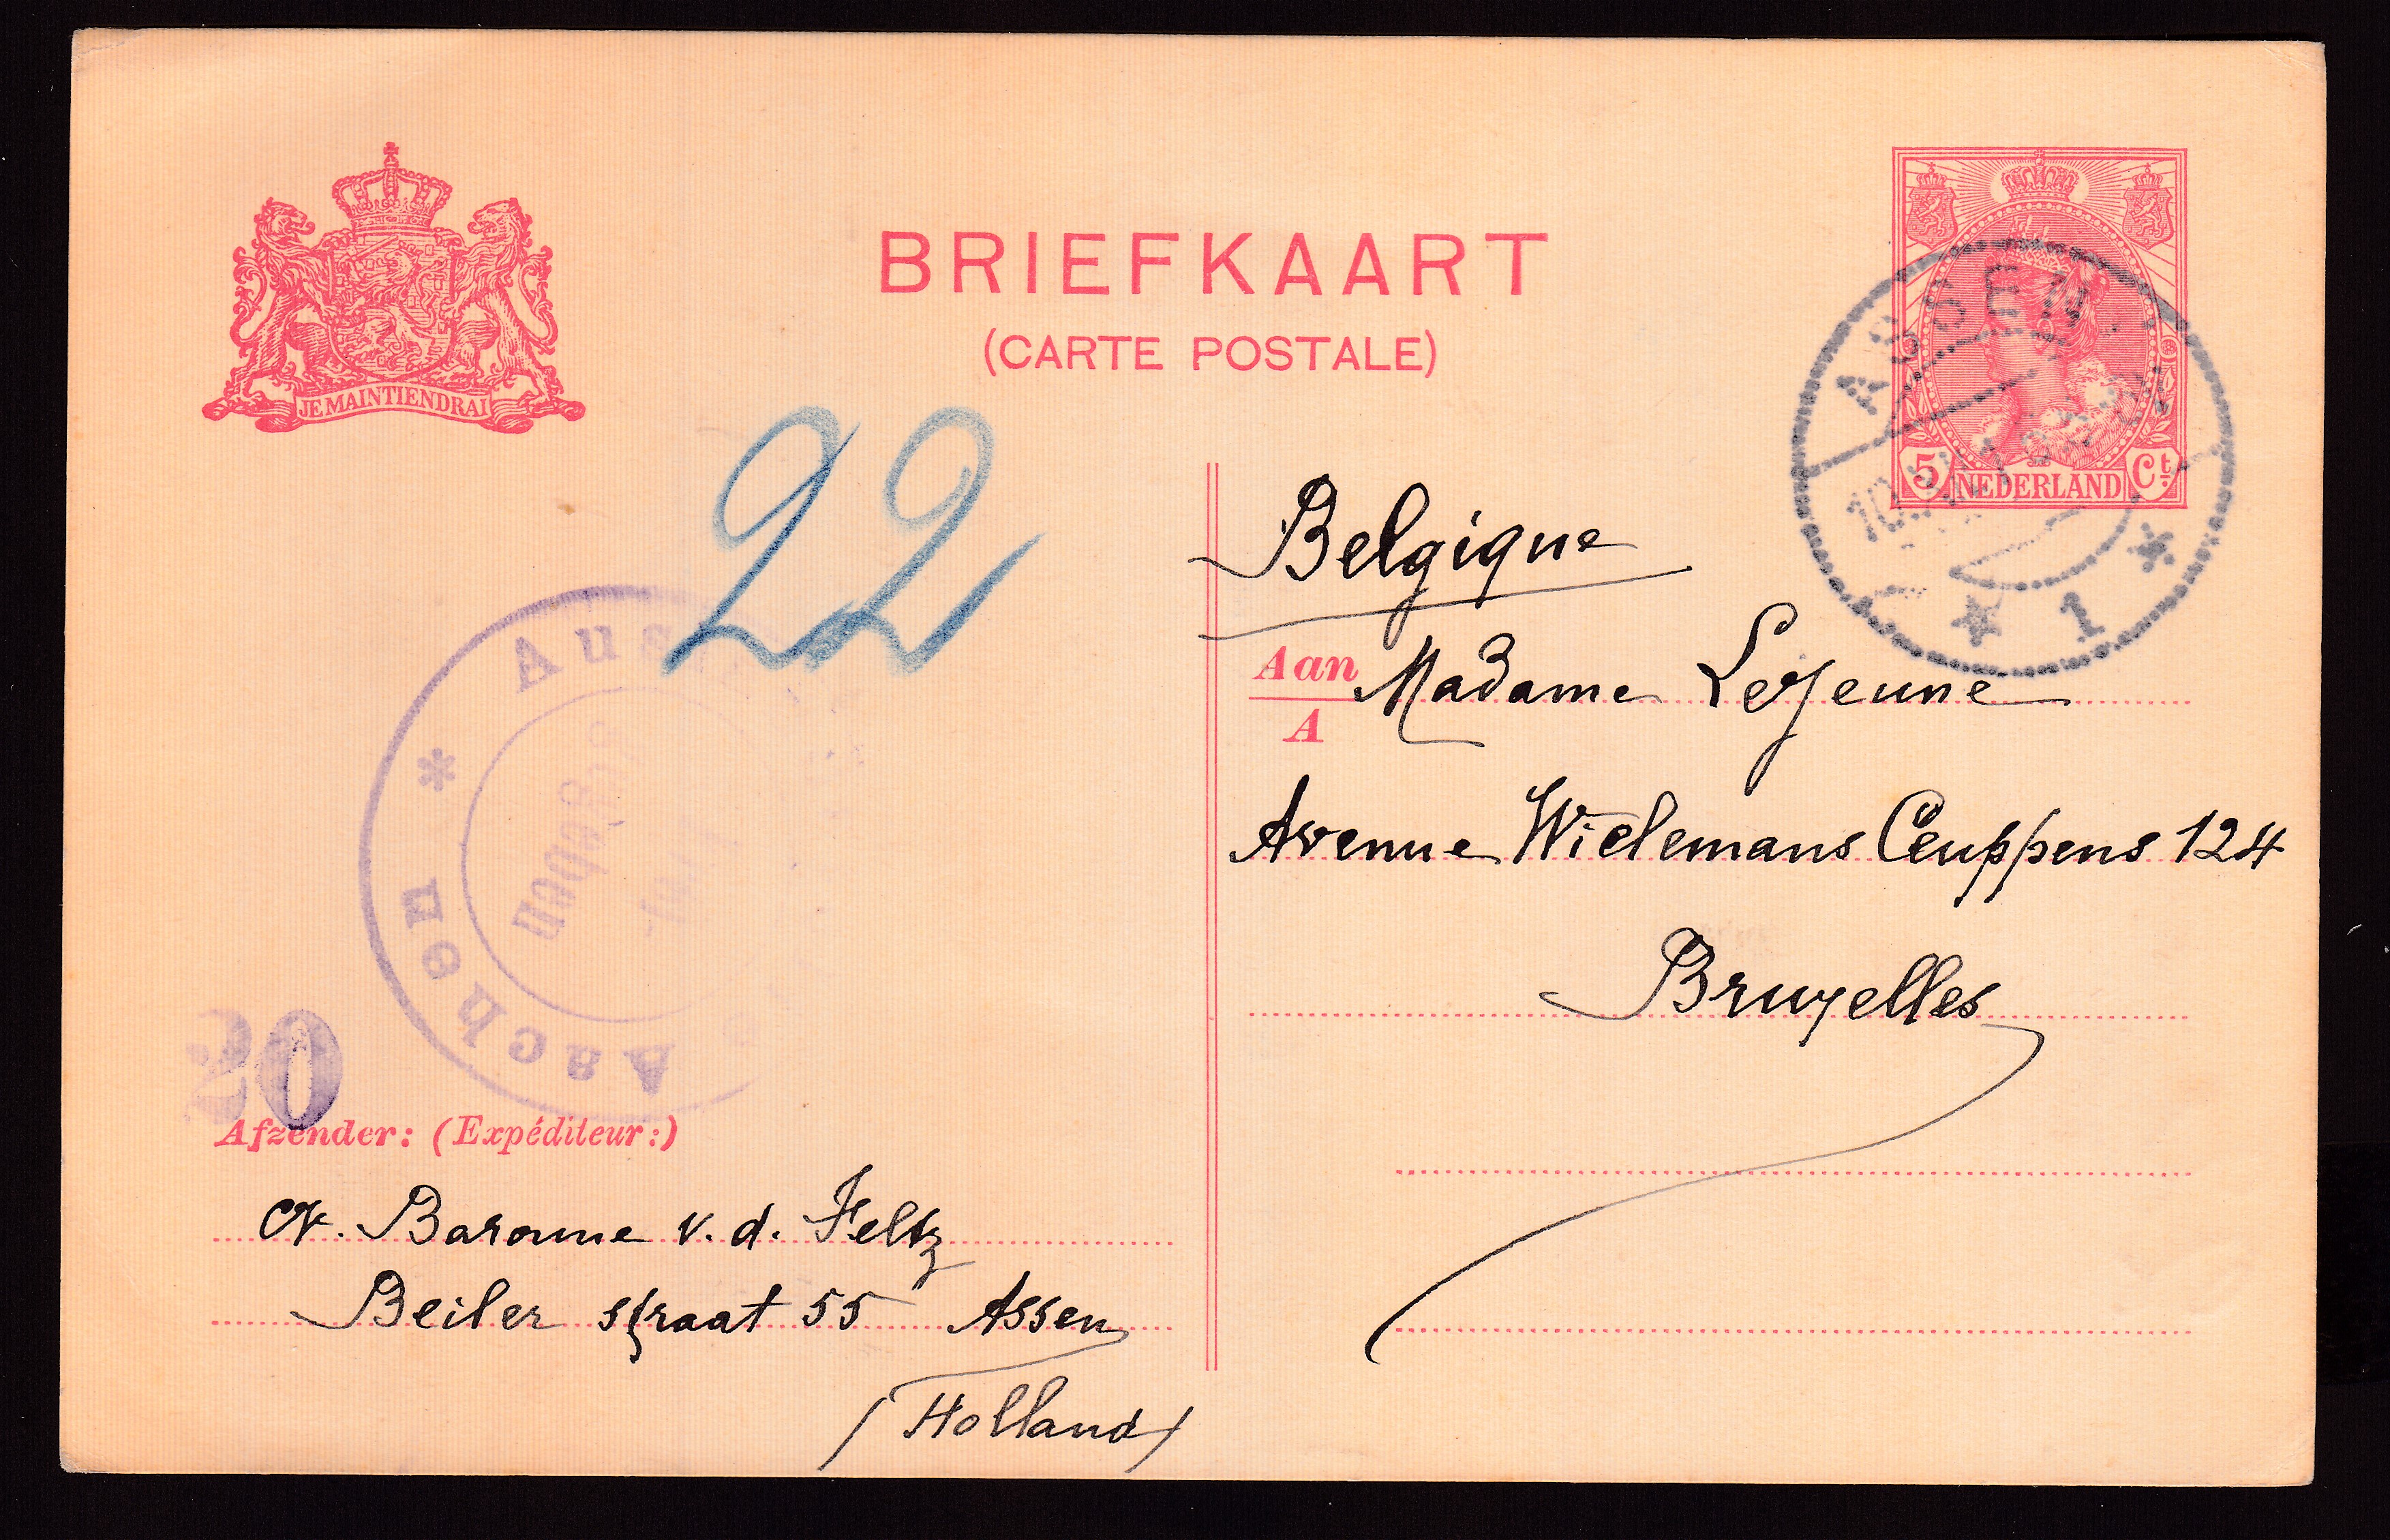 JE MAINTIENDRAI
BRIEFKAART
(CARTE POSTALE)
5 NEDERLAND Ct.
ASSEN
* 1 *
22
Belgique
Aan
A
Madame LeJeune
Avenue Wielemans Ceuppens 124
Bruxelles
Aachen *
geben
20
Afzender: (Expéditeur:)
Baronne v. d. Feltz
Beiler straat 55 Assen
(Holland)